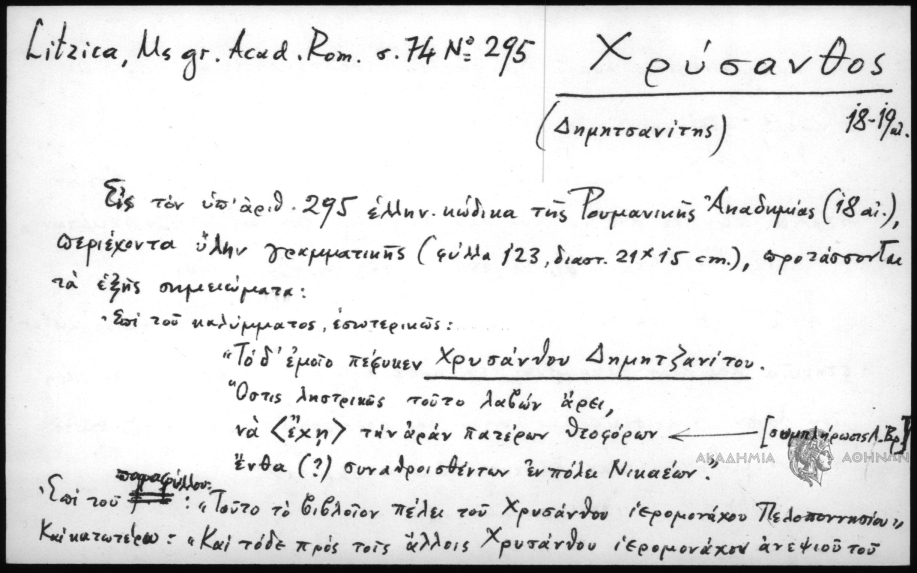 Litzica, Ms gr. Acad. Rom. σ. 74 Nº 295
Χρύσανθος
(Δημητσανίτης)
18-19 αἰ.
Εἰς τὸν ὑπ' ἀριθ. 295 ἑλλην. κώδικα τῆς Ρουμανικῆς Ἀκαδημίας (18 αἰ.),
περιέχοντα ὕλην γραμματικῆς (φύλλα 123, διαστ. 21×15 cm.), προτάσσονται
τὰ ἑξῆς σημειώματα:
Ἐπὶ τοῦ καλύμματος, ἐσωτερικῶς:
"Τόδ' ἐμοῖο πέφυκεν Χρυσάνθου Δημητζανίτου.
Ὅστις ληστρικῶς τοῦτο λαβὼν ἄρει,
νὰ <ἔχῃ> τὴν ἀρὰν πατέρων θεοφόρων ← [συμπλήρωσις Λ. Βρ.]
ἔνθα (?) συναθροισθέντων ἐν πόλει Νικαέων".
ΑΚΑΔΗΜΙΑ ΑΘΗΝΩΝ
Ἐπὶ τοῦ παραφύλλου: "Τοῦτο τὸ βιβλοῖον πέλει τοῦ Χρυσάνθου ἱερομονάχου Πελοποννησίου"
Καὶ κατωτέρω: "Καὶ τόδε πρὸς τοῖς ἄλλοις Χρυσάνθου ἱερομονάχου ἀνεψιοῦ τοῦ